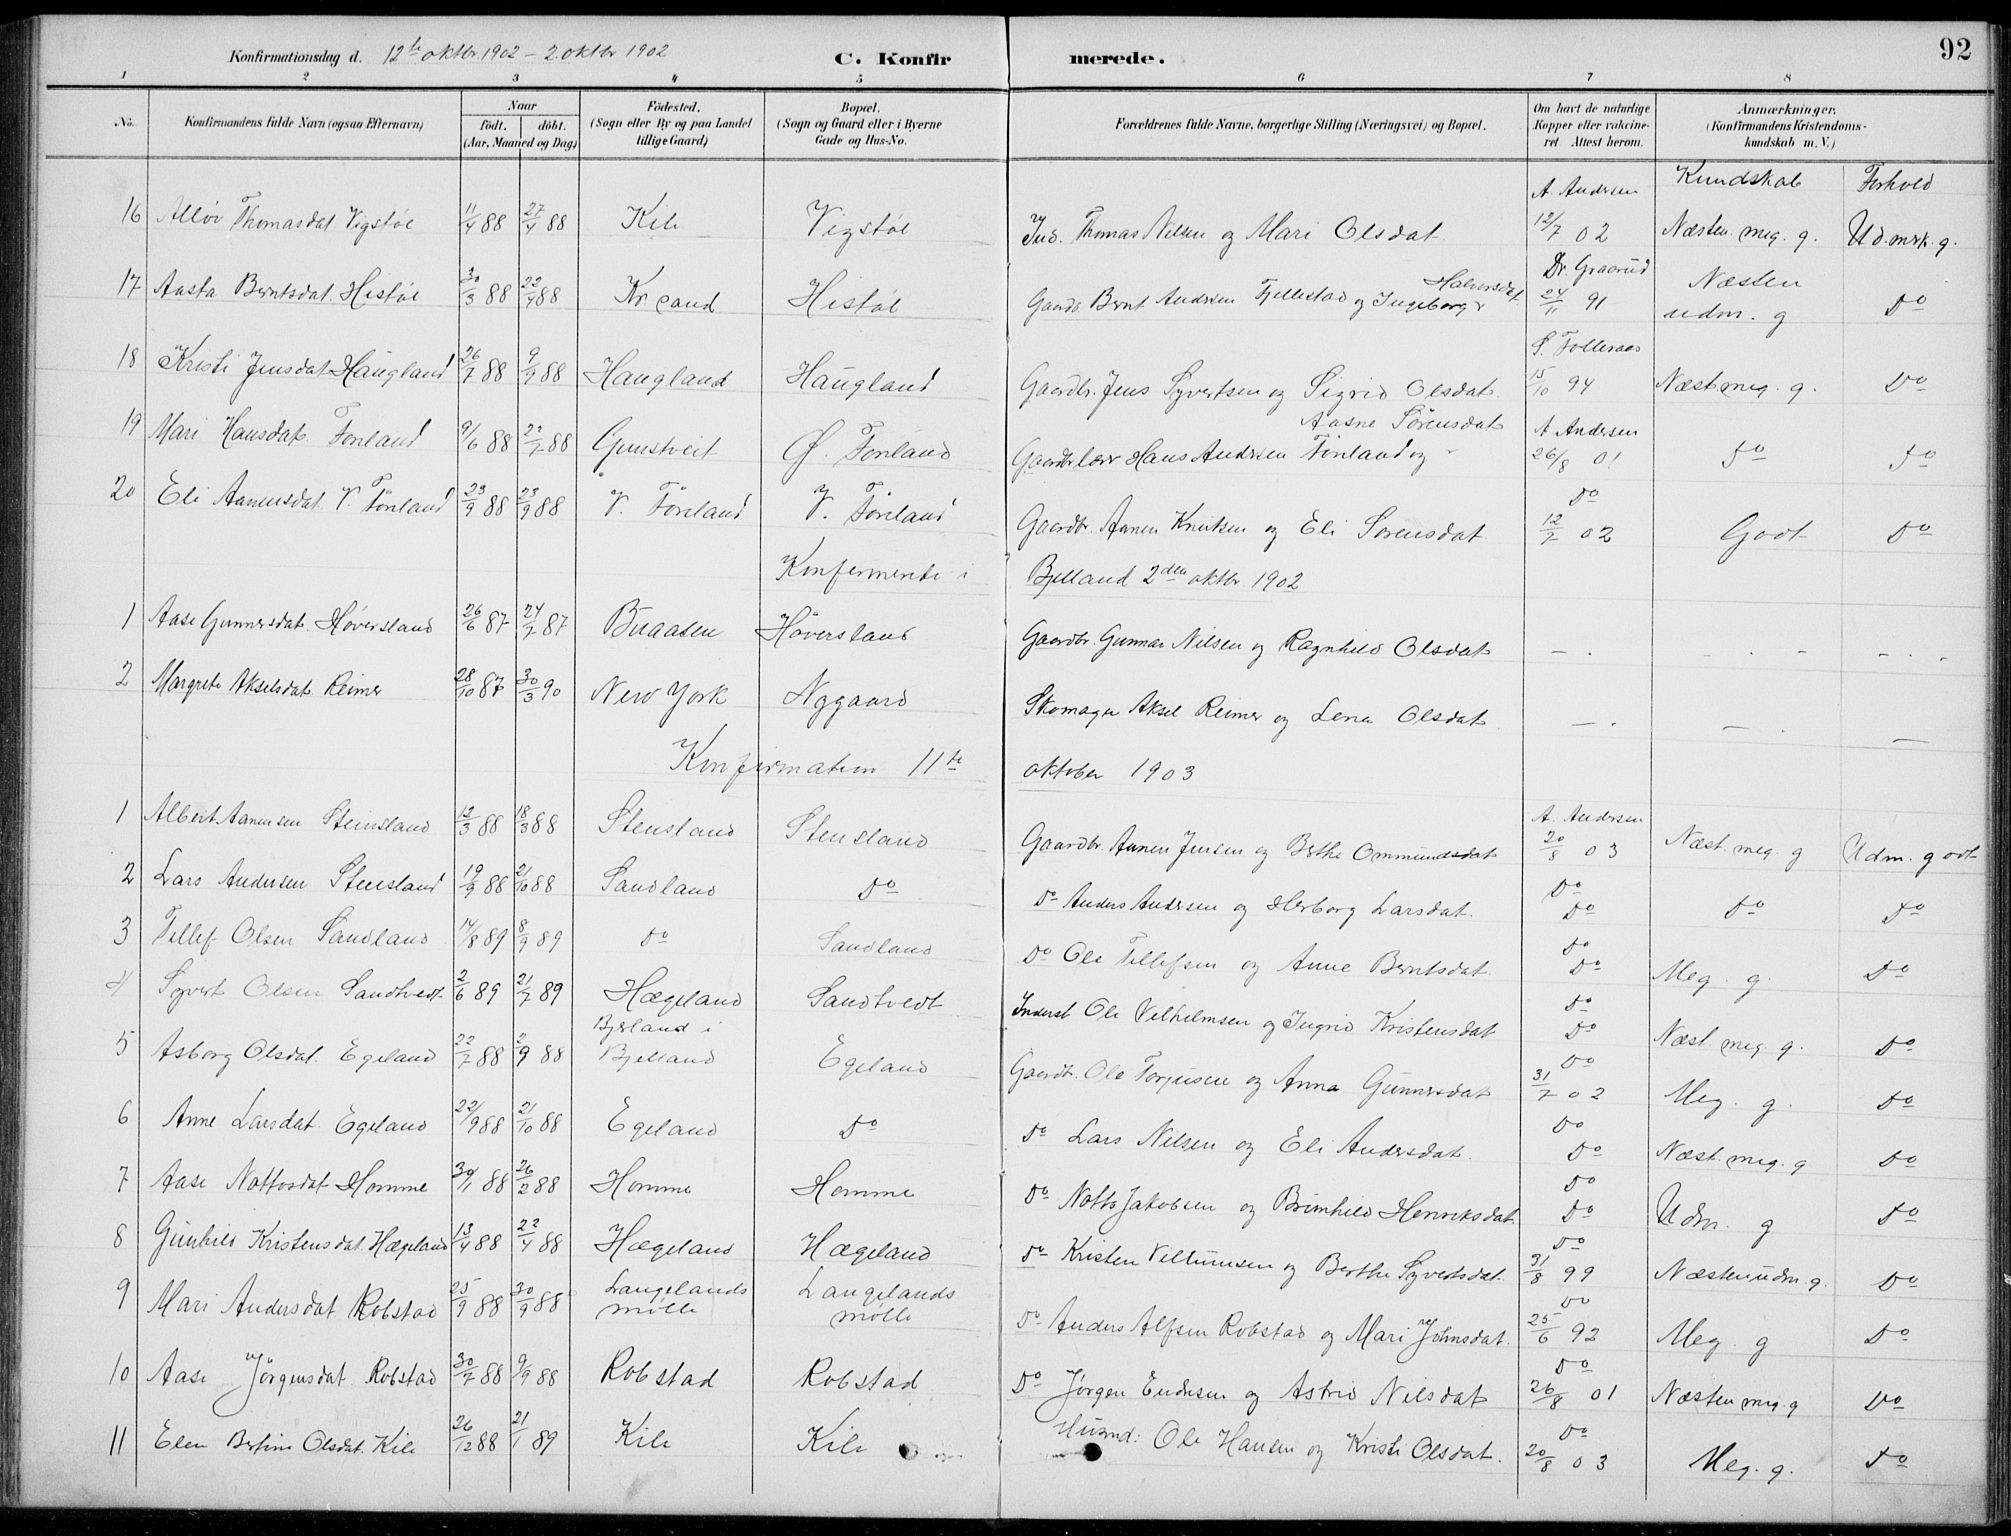 92
Konfirmationsdag d. 12te oktbr. 1902 – 2. oktbr 1902 C. Konfirmerede.
1 2 3 4 5 6 7 8
No. Konfirmandens fulde Navn (ogsaa Efternavn) Naar Födt. döbt. (Aar, Maaned og Dag) Födested. (Sogn eller By og paa Landet tillige Gaard) Bopæl. (Sogn og Gaard eller i Byerne Gade og Hus-No. Forældrenes fulde Navne, borgerlige Stilling (Næringsvei) og Bopæl. Om havt de naturlige Kopper eller vakcineret Attest herom. Anmærkninger. (Konfirmandens Kristendomskundskab m. V.)
Kundskab Forhold
16 Alløv Thomasdat. Vigstøl 11/4 88 27/4 88 Kile Vigstøl Ind. Thomas Nilsen og Mari Olsdat A Andersen 12/7 02 Næsten meg. g. Udmrk. g.
17 Aasta Berntsdat. Hestøl 30/3 88 22/4 88 Kr.sand Hestøl Gaardb. Bernt Andersen Fjellestad og Ingeborg Halvorsdat Dr. Graarud 24/11 91 Næsten udm. g Do
18 Kristi Jensdat Haugland 26/7 88 9/9 88 Haugland Haugland Gaardbr. Jens Syvertsen og Sigrid Olsdat. S. Folleraas 15/10 94 Næst meg. g. Do
19 Mari Hansdat. Fønland 9/6 88 22/7 88 Gunstveit Ø. Fønland Gaardbr. Hans Andersen Fønland og Aasne Sörensdat A Andersen 26/8 01 Do Do
20 Eli Aanensdat. V. Fønland 23/9 88 23/9 88 V. Fønland V. Fønland Gaardbr. Aanen Knutsen og Eli Sorensdat Do 12/7 02 Godt Do
Konfermerte i Bjelland 2den oktbr. 1902
1 Aase Gunnersdat. Høversland 26/6 87 24/7 87 Buaasen Höversland Gaardbr. Gunnar Nilsen og Ragnhild Olsdat – . – . – – . .
2 Margrete Akselsdat. Reimer 28/10 87 30/3 90 New York Nygaard Skomager Aksel Reimer og Lena Olsdat – . – . –
Konfirmation 11te oktober 1903
1 Albert Aanensen Steinsland 12/3 88 18/3 88 Stensland Stensland Gaardbr. Aanen Jensen og Berthe Ommundsdat A. Andersen 20/8 03 Næst. meg. g Udm. godt
2 Lars Andersen Stensland 19/9 88 21/10 88 Sandland Do Do Anders Andersen og Herborg Larsdat. Do Do Do Do
3 Tellef Olsen Sandland 14/8 89 8/9 89 Do Sandland Do Ole Tellefsen og Anne Berntsdat Do Do Meg. g. Do
4 Syvert Olsen Sandtvedt 2/6 89 21/7 89 Hægeland Sandtvedt Inderst Ole Vilhelmsen og Ingrid Kristensdat Do Do Næst. meg. g. Do
5 Asborg Olsdat. Egeland 22/7 88 2/9 88 Bjerland i Bjelland Egeland Gaardb. Ole Torjusen og Anna Gunnersdat Do 31/7 02 Meg. g. Do
6 Anne Larsdat. Egeland 22/9 88 21/10 88 Egeland Do Do Lars Nilsen og Eli Andersdat. Do Do Næst. meg. g Do
7 Aase Nottosdat Homme 30/1 88 26/2 88 Homme Homme Do Notto Jakobsen og Brünhild Henriksdat. Do Do Udm. g Do
8 Gunhild Kristensdat. Hægeland 13/4 88 22/4 88 Hægeland Hægeland Do Kristen Vellumsen og Berthe Syvertsdat. Do 31/8 99 Næsten udm. g. Do
9 Mari Andersdat. Robstad 25/9 88 30/9 88 Langelands mølle Langelands mølle Do Anders Alfsen Robstad og Mari Johnsdat. Do 25/6 92 Meg. g Do
10 Aase Jörgensdat Robstad 30/7 88 9/9 88 Robstad Robstad Do Jörgen Endresen og Astrid Nilsdat Do 26/8 01 Næsten meg. g Do
11 Elen Bertine Olsdat. Kile 26/12 88 21/1 89 Kile Kile Husmd: Ole Hansen og Kristi Olsdat. Do 20/8 03 Meg. g. Do